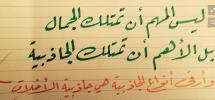 ليس المهم أن تمتلك الجمال
بل الأهم أن تمتلك الجاذبية
وأرقى أنواع الجاذبية هي جاذبية الأخلاق